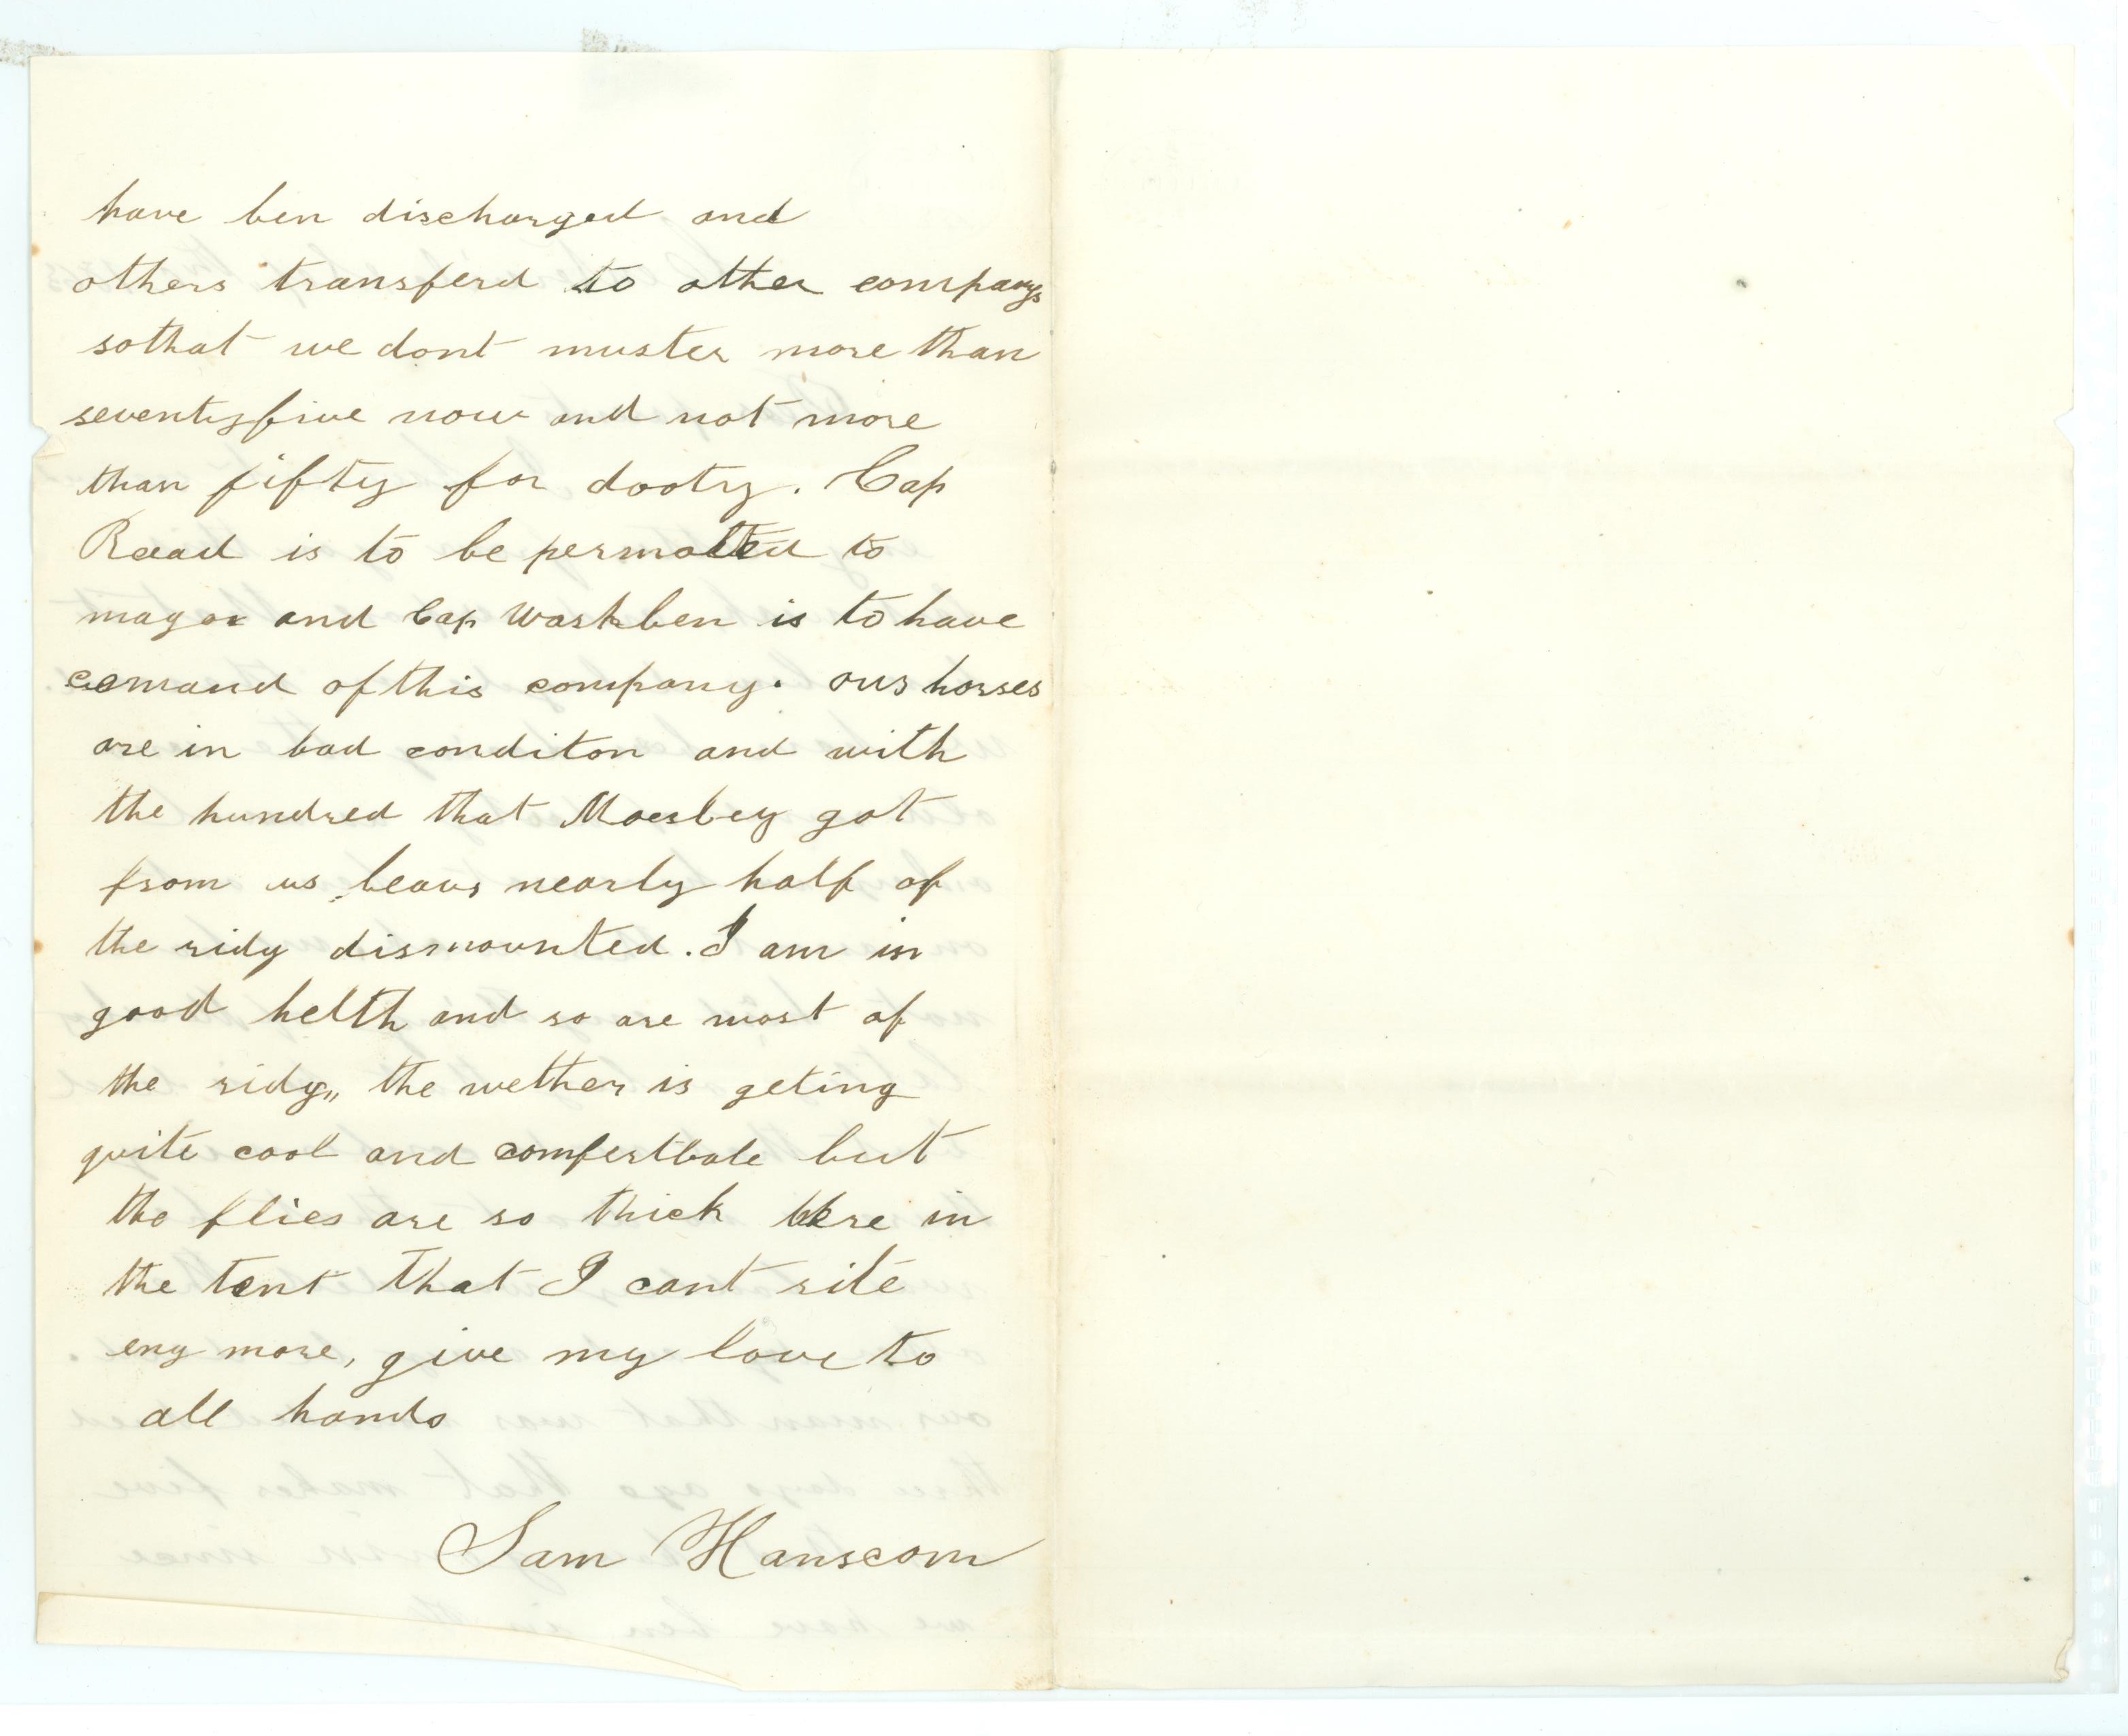 have ben discharged and
others transferd to other companys
sothat we dont muster more than
seventyfive now and not more
than fifty for dooty. Cap
Reead is to be permotted to
magor and Cap Washben is to have
comand of this company. ours horses
are in bad conditon and with
the hundred that Moesbey got
from us leavs nearly half of
the ridg dismounted. I am in
good helth and so are most of
the ridg,, the wether is geting
quite cool and comfertbale but
the flies are so thick here in
the tent that I cant rite
eny more, give my love to
all hands
Sam Hanscom